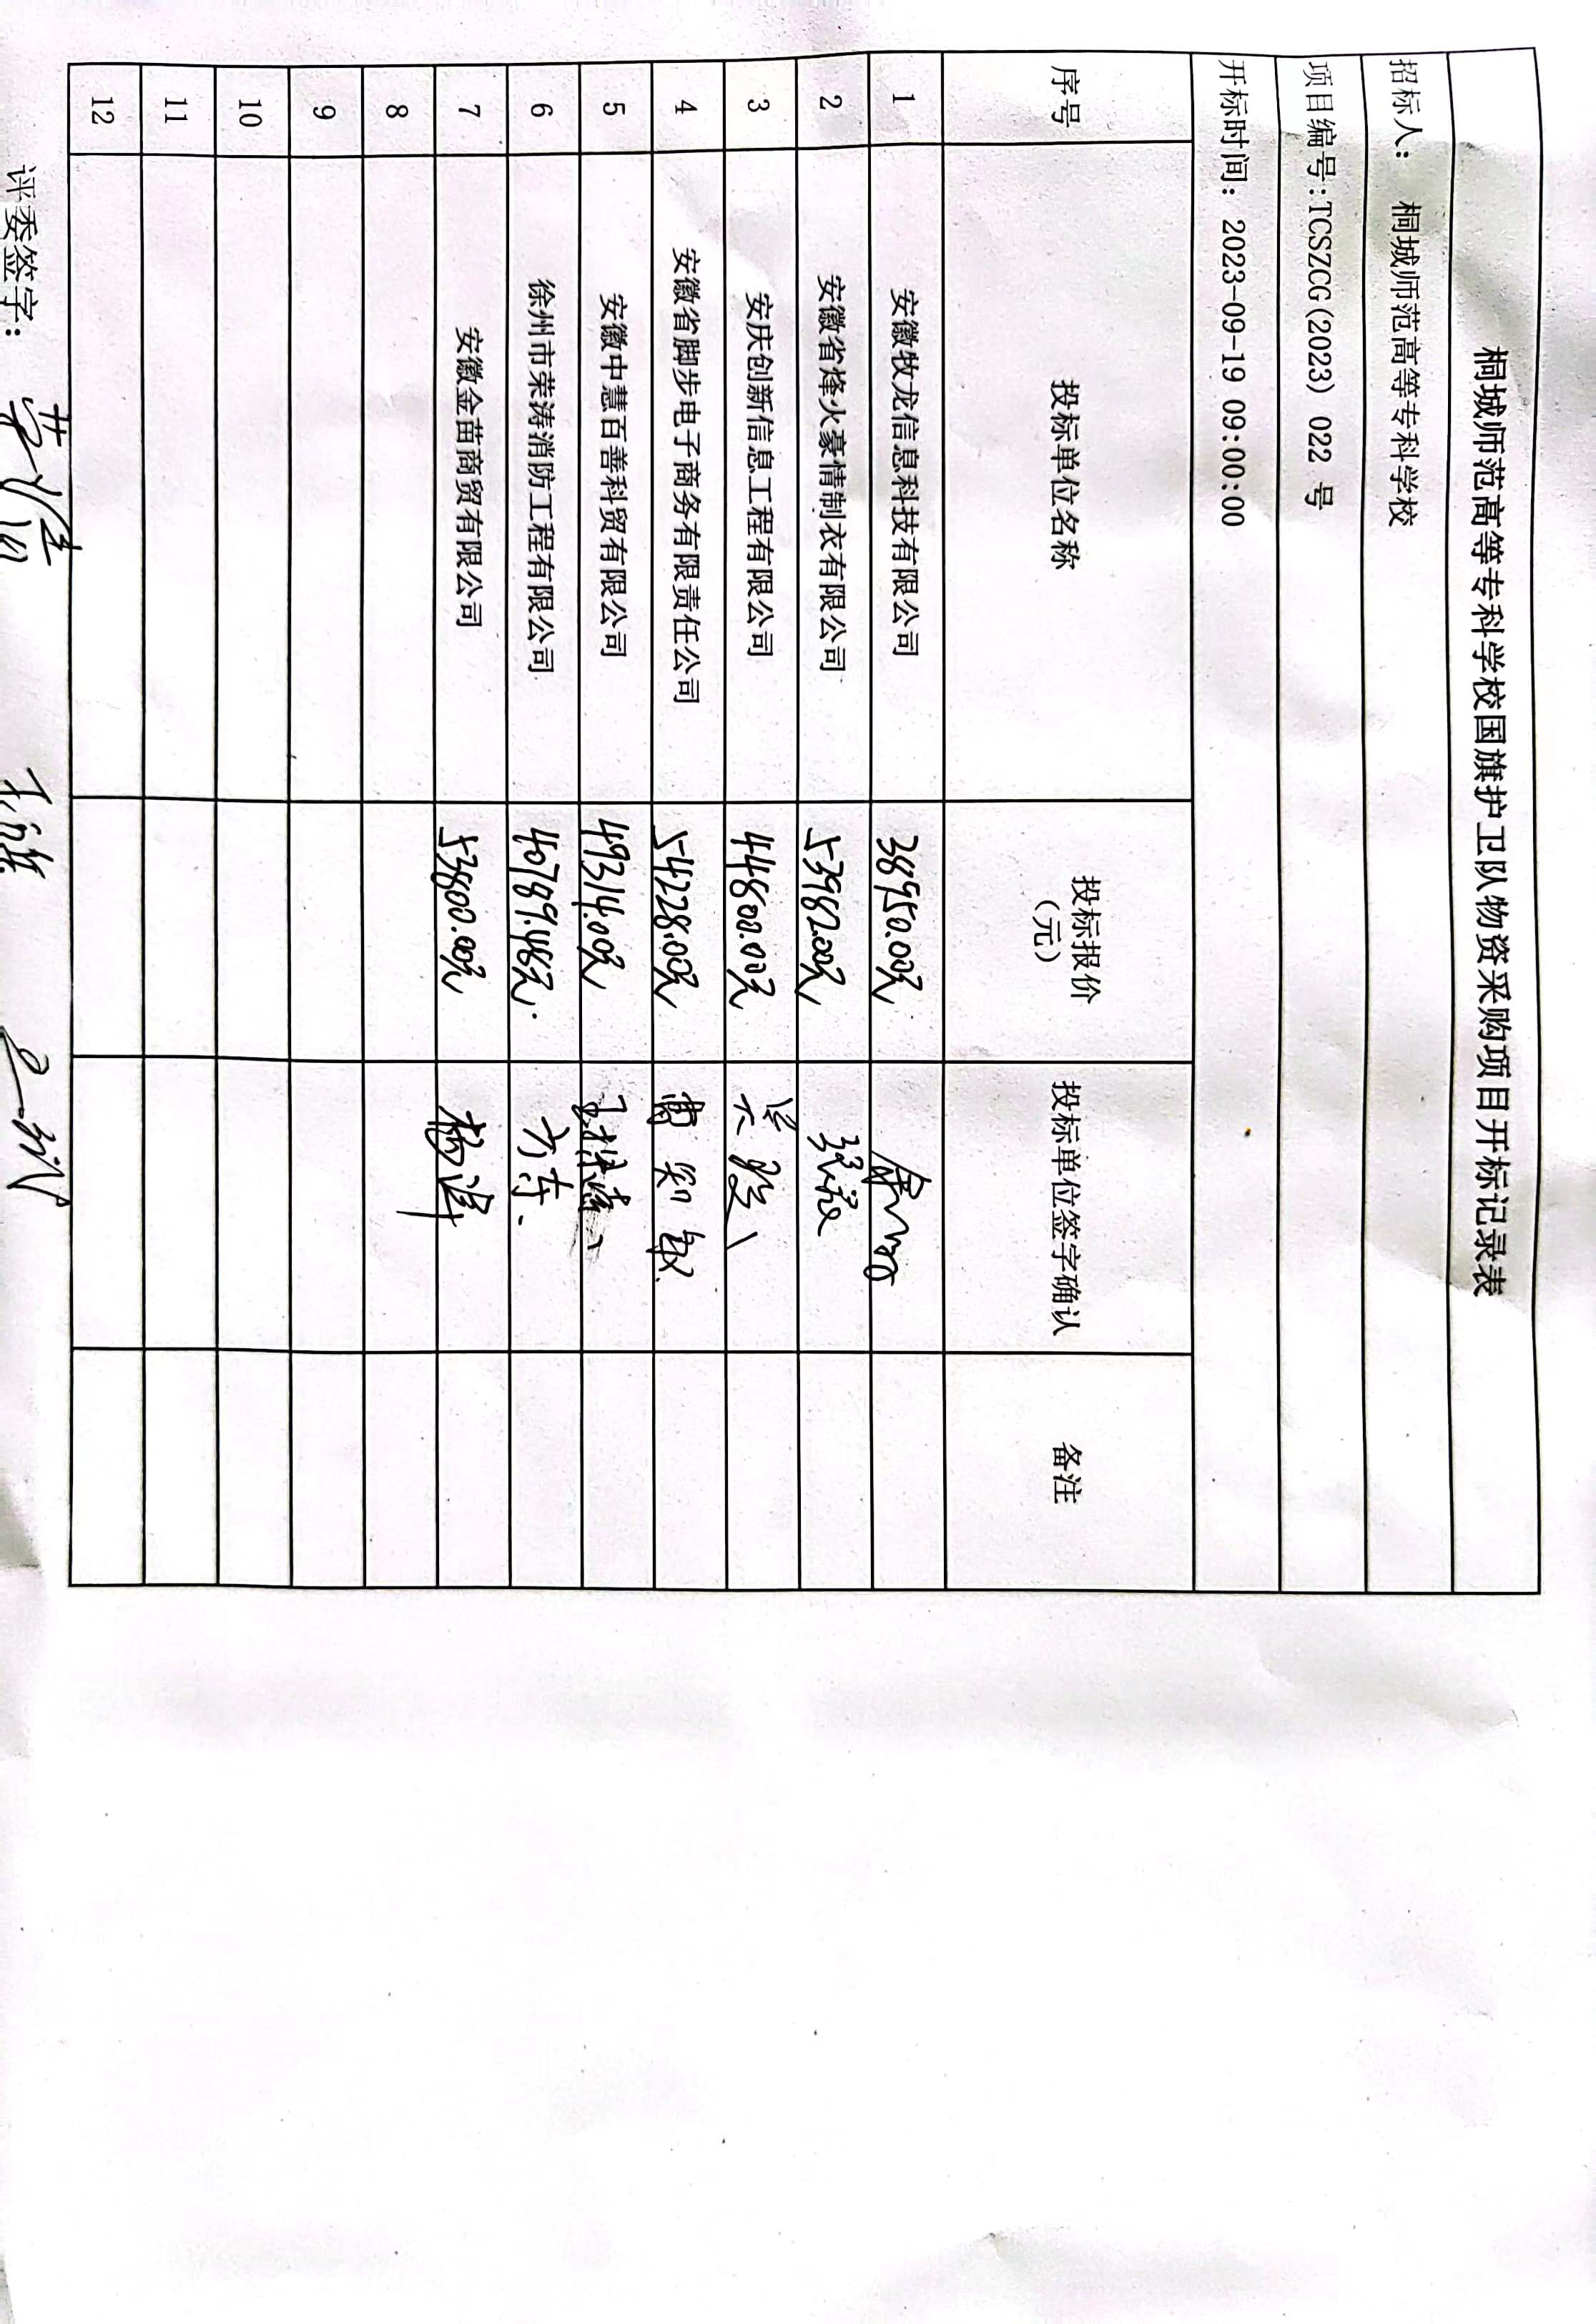 桐城师范高等专科学校国旗护卫队物资采购项目开标记录表
招标人： 桐城师范高等专科学校
项目编号:TCSZCG(2023) 022 号
开标时间: 2023-09-19 09:00:00
序号 投标单位名称 投标报价（元） 投标单位签字确认 备注
1 安徽牧龙信息科技有限公司 38950.00元
2 安徽省烽火豪情制衣有限公司 53982.00元
3 安庆创新信息工程有限公司 44800.00元
4 安徽省脚步电子商务有限责任公司 54228.00元
5 安徽中慧百善科贸有限公司 49314.00元
6 徐州市荣涛消防工程有限公司 40789.48元. 方东.
7 安徽金苗商贸有限公司 53800.00元
8
9
10
11
12
评委签字: